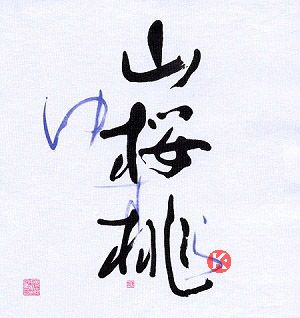 山桜桃
ゆすら